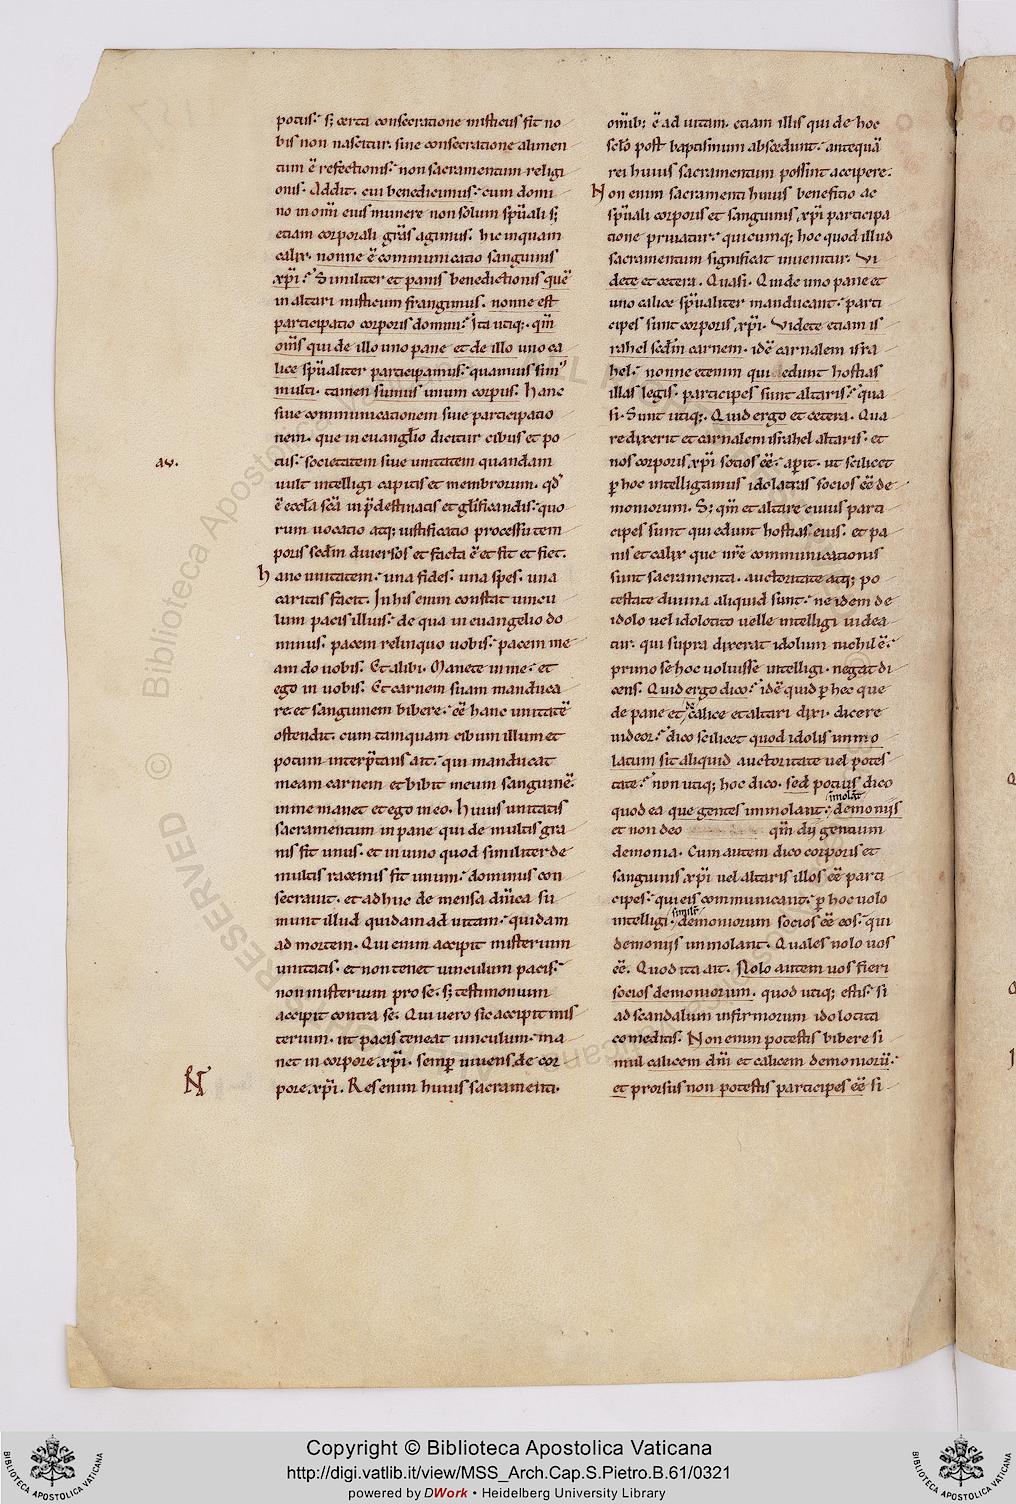 potus.' s; certa consecratione misticus fit no
bis non nascitur. sine consecratione alimen
tum ē refectionis.' non sacramentum religi
onis. Addit. cui benedicimus.' cum domi
no in om̄i eius munere non solum sp̄uali s;
etiam corporali grās agimus. hic inquam
calix. nonne ē communicatio sanguinis
xp̄i.' Similiter et panis benedictionis quē
in altari misticum frangimus. nonne est
participatio corporis domini.' Ita utiq;. qm̄
om̄s qui de illo uno pane et de illo uno ca
lice sp̄ualiter participamus.' quamuis sim'
multi. tamen sumus unum corpus. Hanc
siue communicationem siue participatio
nem. que in euanglio dicitur cibus et po
aꝟ.
tus.' societatem siue unitatem quandam
uult intelligi capitis et membrorum. qđ
ē eccła sc̄a in p̄destinatis et glificandis.' quo
rum uocatio atq; iustificatio processu tem
poris scdm̄ diuersos et facta ē et fit et fiet.
Hanc unitatem.' una fides. una spes. una
caritas facit. In his enim constat uincu
lum pacis illius.' de qua in euangelio do
minus. pacem relinquo uobis.' pacem me
am do uobis. Et alibi. Manete in me.' et
ego in uobis. Et carnem suam manduca
re et sanguinem bibere.' eē hanc unitatē
ostendit. cum tamquam cibum illum et
potum interp̄tans ait.' qui manducat
meam carnem et bibit meum sanguinē.'
in me manet et ego in eo. Huius unitatis
sacramentum in pane qui de multis gra
nis fit unus. et in uino quod similiter de
multis racemis fit unum.' dominus con
secrauit. et adhuc de mensa dn̄ica su
munt illud quidam ad uitam.' quidam
ad mortem. Qui enim accipit misterium
unitatis. et non tenet uinculum pacis.'
non misterium pro se. s; testimonium
accipit contra se. Qui uero sic accipit mis
terium. ut pacis teneat uinculum.' ma
net in corpore xp̄i. semp̄ uiuens de cor
pore xp̄i. Res enim huius sacramenti.
om̄ib; ē ad uitam. etiam illis qui de hoc
sc̄lo post baptismum abscedunt.' antequā
rei huius sacramentum possint accipere.
Non enim sacramenti huius benefitio ac
sp̄uali corporis et sanguinis xp̄i participa
tione priuatur.' quicumq; hoc quod illud
sacramentum significat inuenitur. Vi
dete et cetera. Quasi. Qui de uno pane et
uno calice sp̄ualiter manducant.' parti
cipes sunt corporis xp̄i. Videte etiam is
rahel scdm̄ carnem. idē carnalem isra
hel.' nonne etenim qui edunt hostias
illas legis. participes sunt altaris.' qua
si. Sunt utiq;. Quid ergo et cetera. Qua
re dixerit et carnalem israhel altaris. et
nos corporis xp̄i socios eē.' aperit. ut scilicet
p̄ hoc intelligamus idolatras socios eē de
moniorum. S; qm̄ et altare cuius parti
cipes sunt qui edunt hostias eius. et pa
nis et calix que nr̄e communicationis
sunt sacramenta. auctoritate atq; po
testate diuina aliquid sunt.' ne idem de
idolo uel idolotito uelle intelligi uidea
tur. qui supra dixerat idolum nichil ē.'
primo se hoc uoluisse intelligi. negat di
cens. Quid ergo dico.' idē quid p̄ hec que
de pane et de calice et altari dixi. dicere
uideor.' dico scilicet quod idolis immo
latum sit aliquid auctoritate uel potes
tate.' non utiq; hoc dico. sed potius dico
quod ea que gentes immolant.' imolant demoniis
et non deo qm̄ dij gentium
demonia. Cum autem dico corporis et
sanguinis xp̄i uel altaris illos eē parti
cipes.' qui eis communicant.' p̄ hoc uolo
intelligi similiter demoniorum socios eē eos.' qui
demoniis immolant. Quales nolo uos
eē. Quod ita ait. Nolo autem uos fieri
socios demoniorum. quod utiq; estis.' si
ad scandalum infirmorum idolotita
comeditis. Non enim potestis bibere si
mul calicem dn̄i et calicem demoniorū.'
et prorsus non potestis participes eē si
Copyright © Biblioteca Apostolica Vaticana
http://digi.vatlib.it/view/MSS_Arch.Cap.S.Pietro.B.61/0321
powered by DWork • Heidelberg University Library